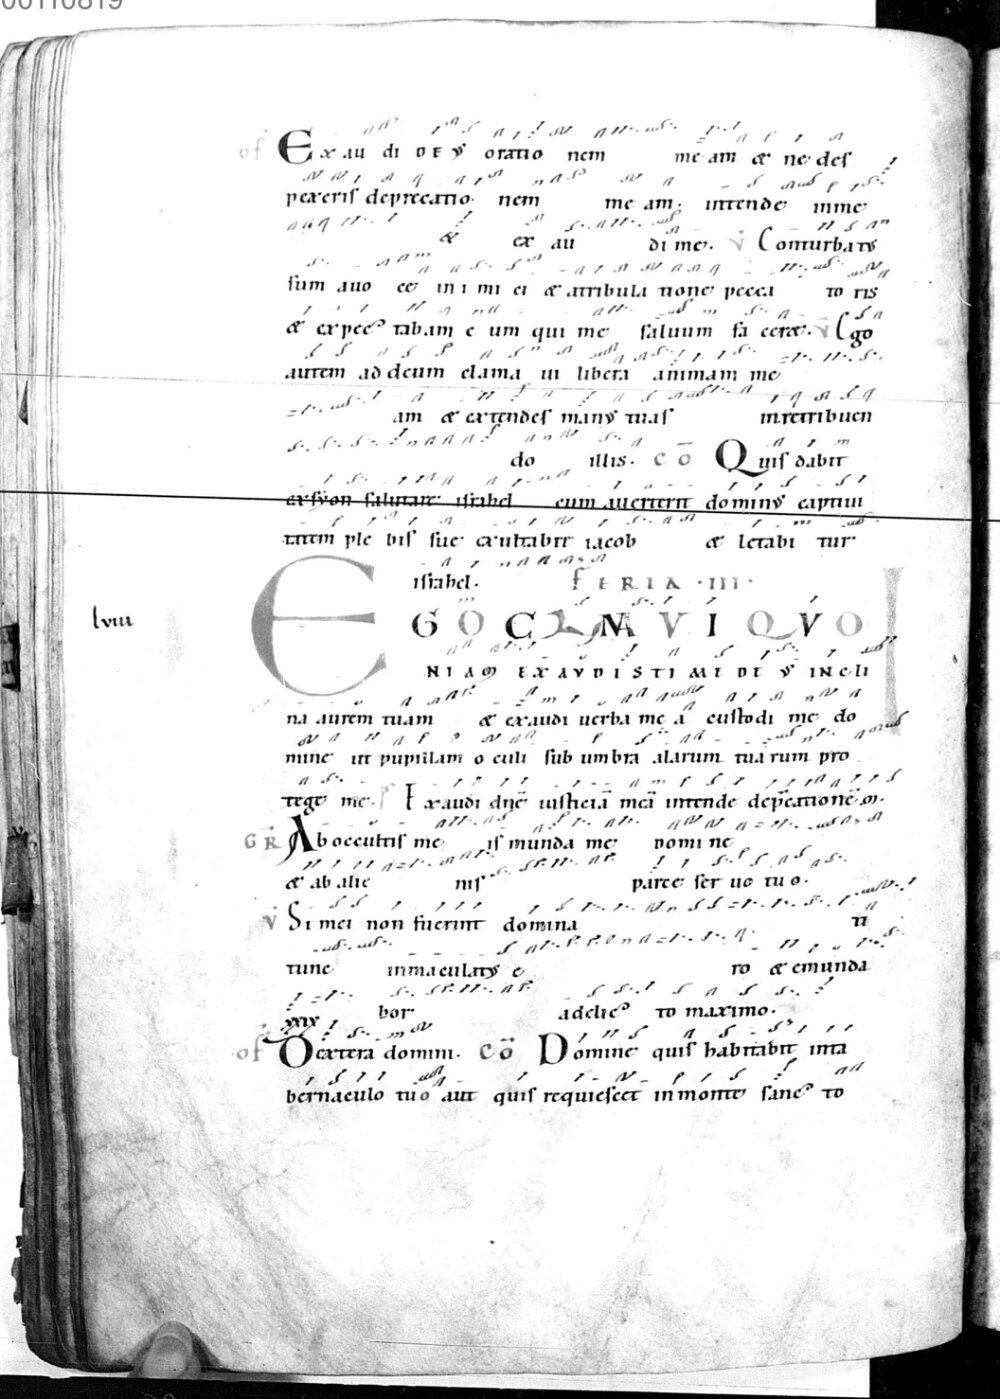 00110819
of Exau di DEUS oratio nem me am & ne des
pexeris deprecatio nem me am. intende inme
& ex au di me. V Conturbatus
sum auo ce inimi ci & atribula tione pecca to ris
& expec tabam e um qui me saluum fa ceret. V Ego
autem ad deum clama ui libera animam me
am & extendes manus tuas inretribuen
do illis. CO Quis dabit
exsyon salutare israhel cum auerterit dominus captiui
tatem ple bis sue exultabit iacob & letabi tur
israhel. FERIA .III.
lviii EGO CLAMAVI QVO
NIAM EXAVDISTI ME DEVS INCLI
na aurem tuam & exaudi uerba me a custodi me do
mine ut pupillam o culi sub umbra alarum tuarum pro
tege me. Exaudi dne iusticiā meā intende deprecationē m.
GR Ab occultis me is munda me domi ne
& ab alie nis parce ser uo tu o.
V Si mei non fuerint domina ti
tunc inmaculatus e ro & emunda
bor adelic to maximo.
xxix
of Dextera domini. CO Domine quis habitabit inta
bernaculo tuo aut quis requiescet inmonte sanc to